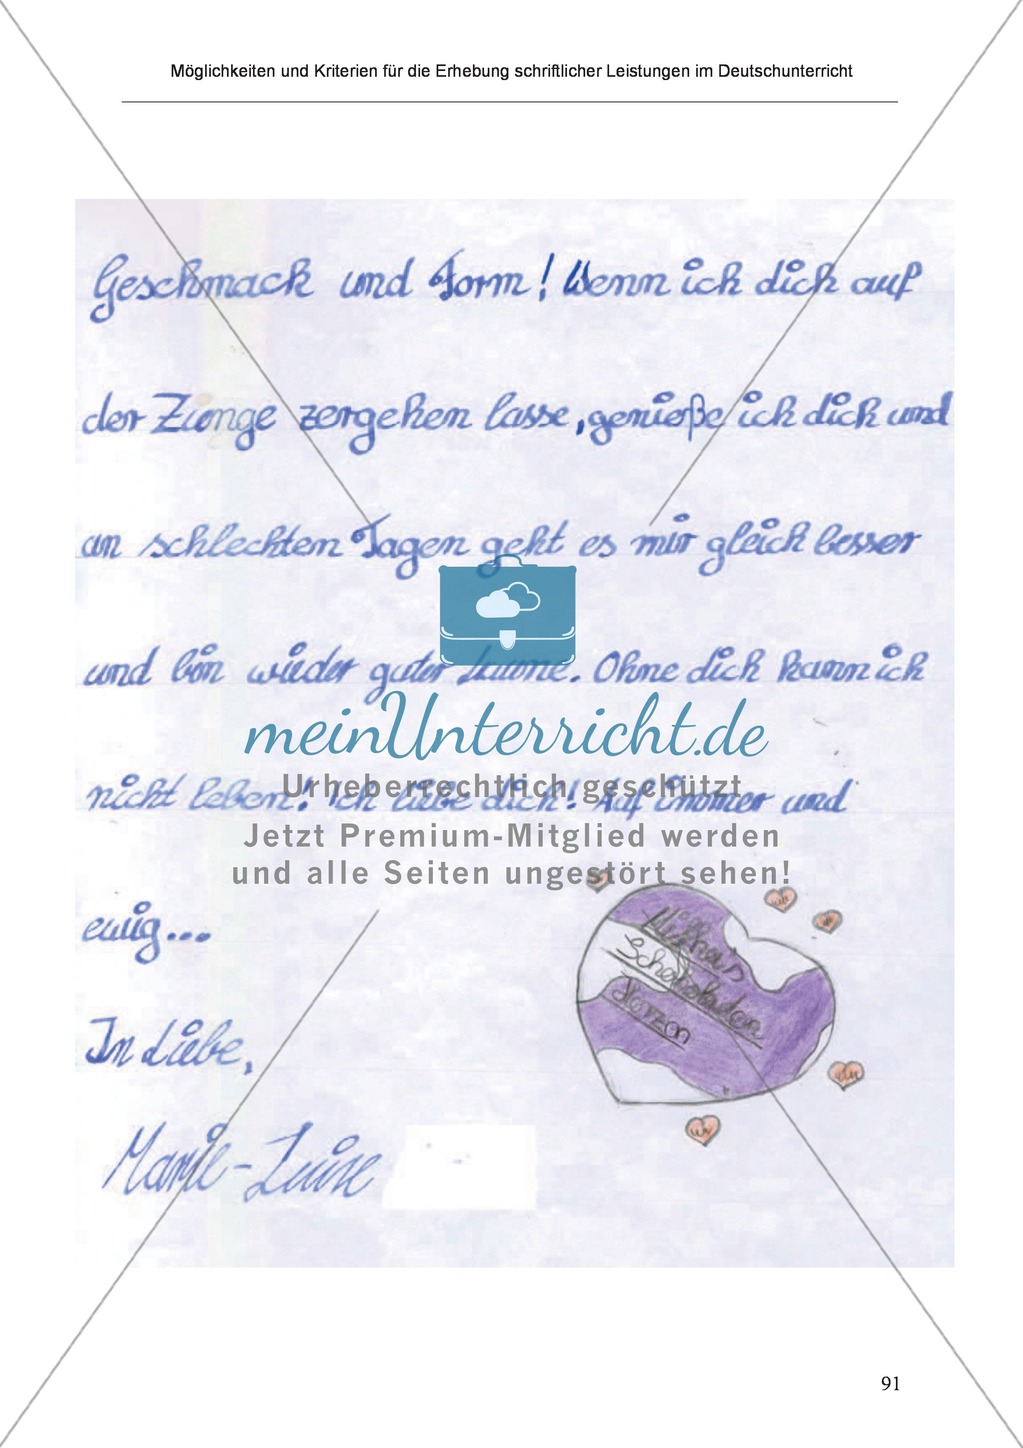 Möglichkeiten und Kriterien für die Erhebung schriftlicher Leistungen im Deutschunterricht
Geschmack und Form! Wenn ich dich auf
der Zunge zergehen lasse, genieße ich dich und
an schlechten Tagen geht es mir gleich besser
und bin wieder guter Laune. Ohne dich kann ich
meinUnterricht.de
nicht leben! Ich liebe dich! Auf immer und
Urheberrechtlich geschützt
Jetzt Premium-Mitglied werden
und alle Seiten ungestört sehen!
ewig...
Schokoladen
Herzen
In Liebe,
Marie-Luise
91